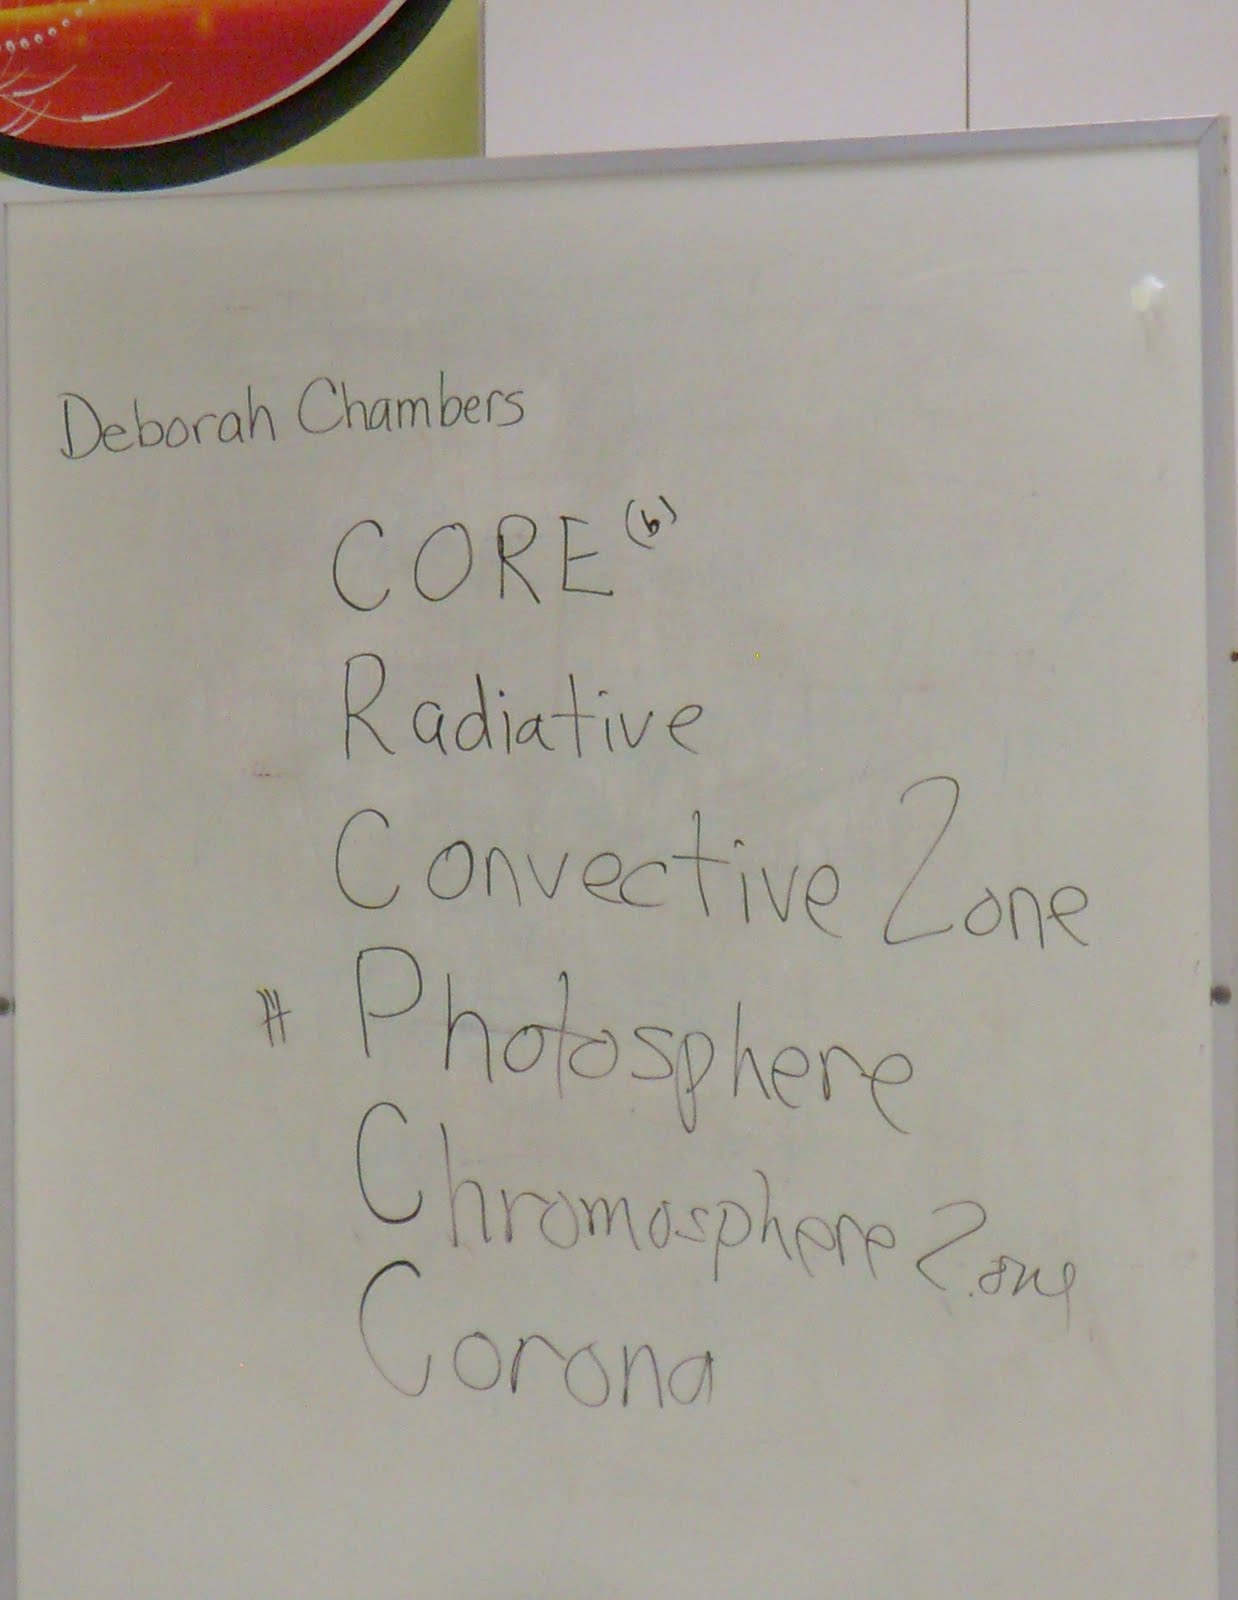 Deborah Chambers
CORE (6)
Radiative
Convective Zone
Photosphere
Chromosphere Zone
Corona